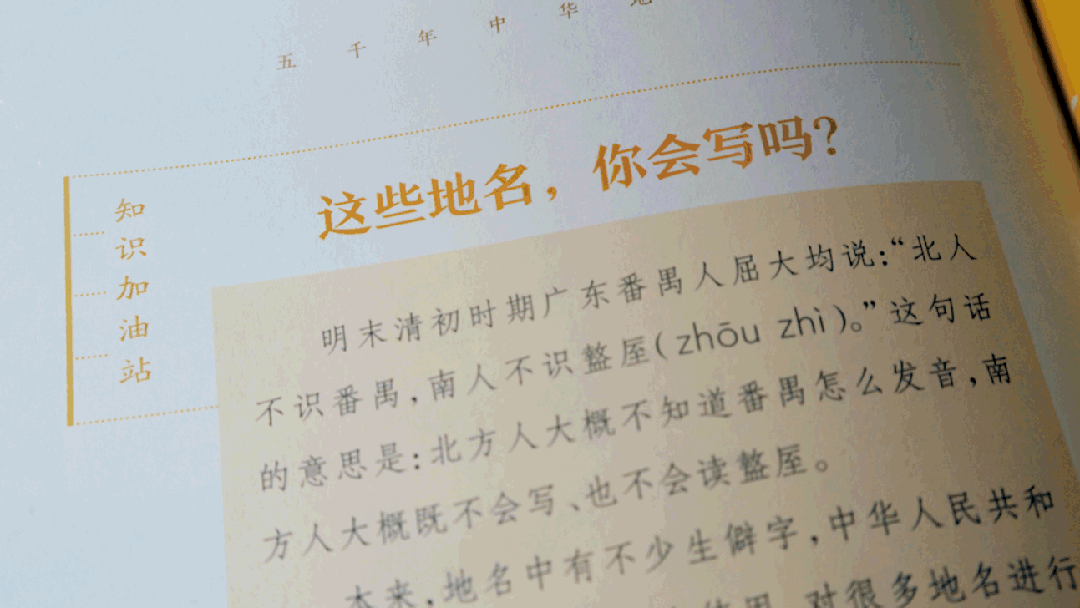 五千年中华地
这些地名，你会写吗？
知识加油站
明末清初时期广东番禺人屈大均说：“北人
不识番禺，南人不识盩厔（zhōu zhì）。”这句话
的意思是：北方人大概不知道番禺怎么发音，南
方人大概既不会写、也不会读盩厔。
本来，地名中有不少生僻字，中华人民共和
对很多地名进行